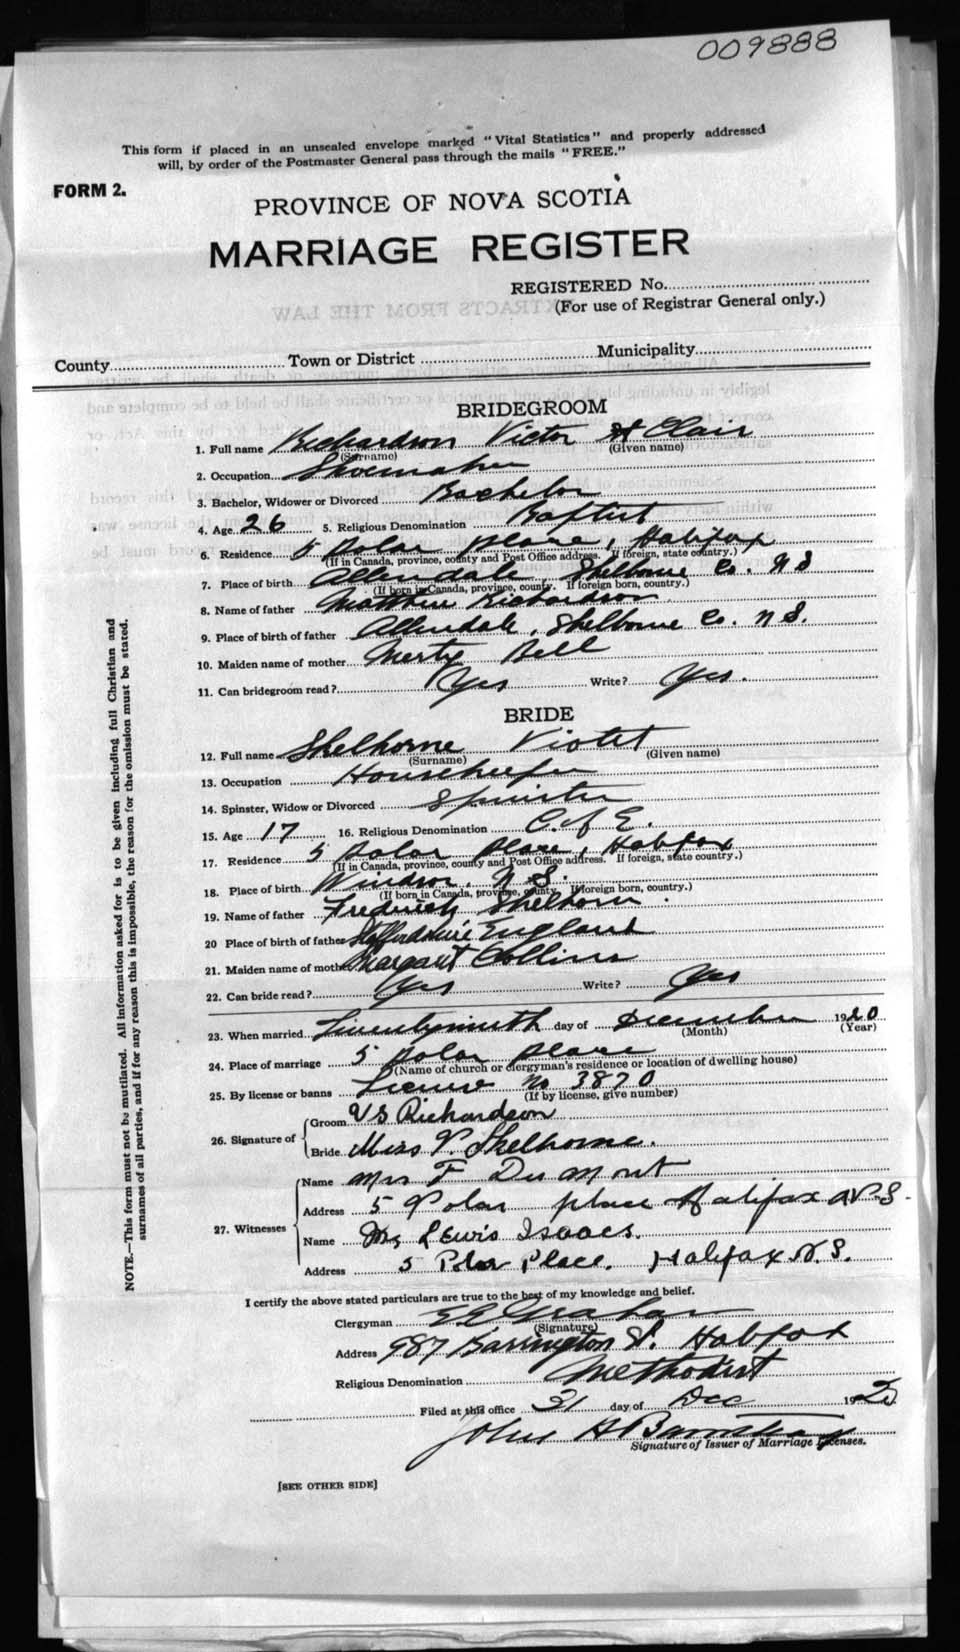 009888
This form if placed in an unsealed envelope marked "Vital Statistics" and properly addressed
will, by order of the Postmaster General pass through the mails "FREE."
FORM 2.
PROVINCE OF NOVA SCOTIA
MARRIAGE REGISTER
REGISTERED No.
(For use of Registrar General only.)
County Town or District Municipality
BRIDEGROOM
1. Full name Richardson Victor St Clair
(Surname) (Given name)
2. Occupation Shoemaker
3. Bachelor, Widower or Divorced Bachelor
4. Age 26 5. Religious Denomination Baptist
6. Residence 5 Polar place, Halifax
(If in Canada, province, county and Post Office address. If foreign, state country.)
7. Place of birth Allendale, Shelborne Co. N S
(If born in Canada, province, county. If foreign born, country.)
8. Name of father Matthew Richardson
9. Place of birth of father Allendale, Shelborne Co. N S.
10. Maiden name of mother Bell
11. Can bridegroom read? Yes Write? Yes.
BRIDE
12. Full name Shelhorne Violet
(Surname) (Given name)
13. Occupation Housekeeper
14. Spinster, Widow or Divorced Spinster
15. Age 17 16. Religious Denomination C. of E.
17. Residence 5 Polar place, Halifax
(If in Canada, province, county and Post Office address. If foreign, state country.)
18. Place of birth Windsor, N S.
(If born in Canada, province, county If foreign born, country.)
19. Name of father Frederick Shelhorn.
20 Place of birth of father Staffordshire England
21. Maiden name of mother Margaret Collins
22. Can bride read? Yes Write? Yes
23. When married Twentyninth day of December 1920
(Month) (Year)
24. Place of marriage 5 Polar place
(Name of church or clergyman's residence or location of dwelling house)
25. By license or banns License No 3870
(If by license, give number)
26. Signature of
Groom V S Richardson
Bride Miss V. Shelhorne.
27. Witnesses
Name Mrs F DuMont
Address 5 Polar place Halifax N.S.
Name Lewis Isaacs.
Address 5 Polar Place. Halifax N.S.
I certify the above stated particulars are true to the best of my knowledge and belief.
Clergyman E E Graham
(Signature)
Address 987 Barrington St. Halifax
Religious Denomination Methodist
Filed at this office 31 day of Dec 1920
John
Signature of Issuer of Marriage Licenses.
[SEE OTHER SIDE]
NOTE.—This form must not be mutilated. All information asked for is to be given including full Christian and
surnames of all parties, and if for any reason this is impossible, the reason for the omission must be stated.